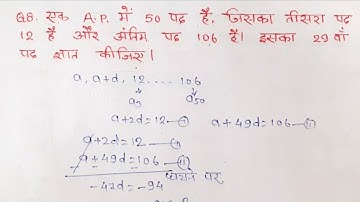 Q8. एक A.P. में 50 पद है, जिसका तीसरा पद
12 है और अंतिम पद 106 है। इसका 29 वाँ
पद ज्ञात कीजिए।
a, a+d, 12 .... 106
a₃ a₅₀
a+2d=12 —① a+49d=106 —⑪
a+2d=12 —①
a+49d=106 —⑪
घटाने पर
-47d=-94